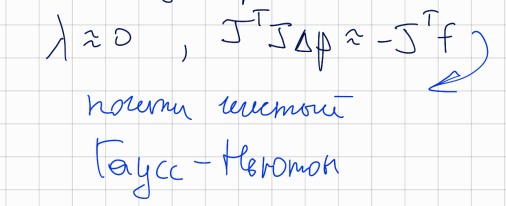 λ ≈ 0 , JᵀJΔp ≈ -Jᵀf
почти чистый
Гаусс-Ньютон